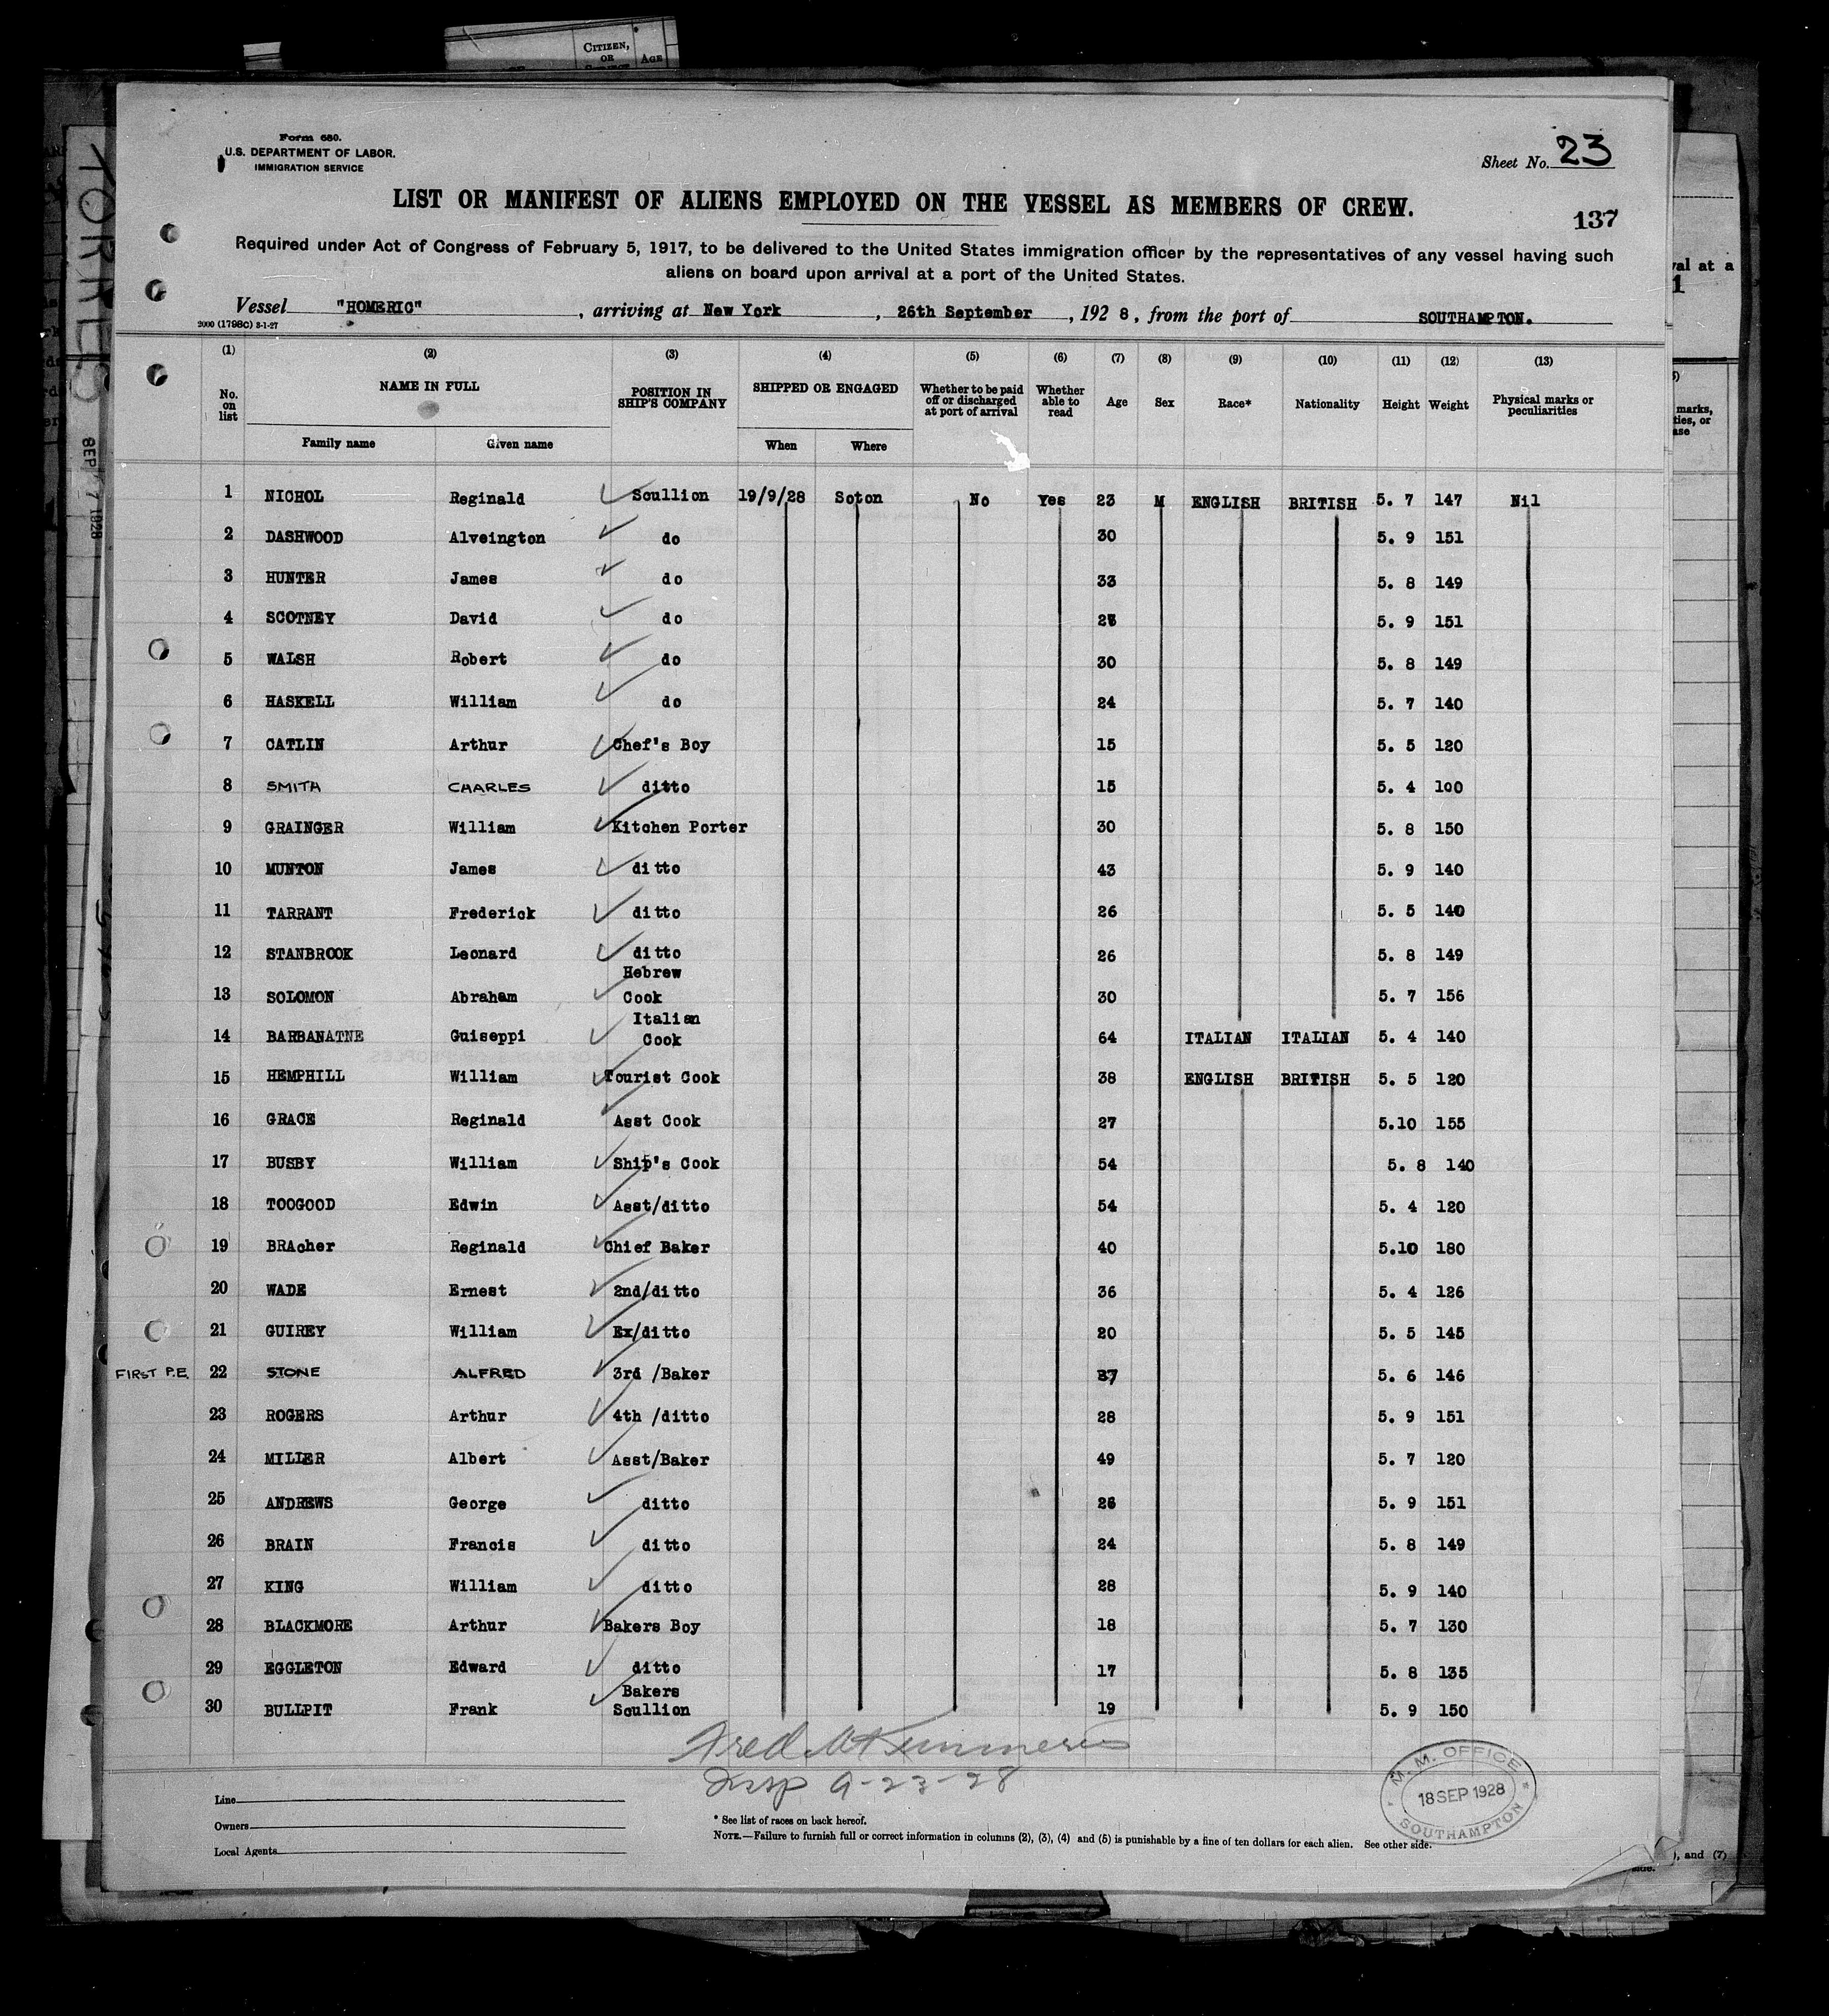 CITIZEN,
OR
AGE
Form 680.
U.S. DEPARTMENT OF LABOR.
IMMIGRATION SERVICE
Sheet No. 23
LIST OR MANIFEST OF ALIENS EMPLOYED ON THE VESSEL AS MEMBERS OF CREW.
137
Required under Act of Congress of February 5, 1917, to be delivered to the United States immigration officer by the representatives of any vessel having such
aliens on board upon arrival at a port of the United States.
Vessel "HOMERIC", arriving at New York, 26th September, 1928, from the port of SOUTHAMPTON.
2000 (1798C) 3-1-27
(1) (2) (3) (4) (5) (6) (7) (8) (9) (10) (11) (12) (13)
No. on list NAME IN FULL POSITION IN SHIP'S COMPANY SHIPPED OR ENGAGED Whether to be paid off or discharged at port of arrival Whether able to read Age Sex Race* Nationality Height Weight Physical marks or peculiarities
Family name Given name When Where
1 NICHOL Reginald Scullion 19/9/28 Soton No Yes 23 M ENGLISH BRITISH 5. 7 147 Nil
2 DASHWOOD Alveington do 30 5. 9 151
3 HUNTER James do 33 5. 8 149
4 SCOTNEY David do 5. 9 151
5 WALSH Robert do 30 5. 8 149
6 HASKELL William do 24 5. 7 140
7 CATLIN Arthur Chef's Boy 15 5. 5 120
8 SMITH CHARLES ditto 15 5. 4 100
9 GRAINGER William Kitchen Porter 30 5. 8 150
10 MUNTON James ditto 43 5. 9 140
11 TARRANT Frederick ditto 26 5. 5 140
12 STANBROOK Leonard ditto 26 5. 8 149
13 SOLOMON Abraham Hebrew Cook 30 5. 7 156
14 BARBANATNE Guiseppi Italian Cook 64 ITALIAN ITALIAN 5. 4 140
15 HEMPHILL William Tourist Cook 38 ENGLISH BRITISH 5. 5 120
16 GRACE Reginald Asst Cook 27 5.10 155
17 BUSBY William Ship's Cook 54 5. 8 140
18 TOOGOOD Edwin Asst/ditto 54 5. 4 120
19 BRAcher Reginald Chief Baker 40 5.10 180
20 WADE Ernest 2nd/ditto 36 5. 4 126
21 GUIREY William Ex/ditto 20 5. 5 145
FIRST P.E. 22 STONE ALFRED 3rd /Baker 37 5. 6 146
23 ROGERS Arthur 4th /ditto 28 5. 9 151
24 MILLER Albert Asst/Baker 49 5. 7 120
25 ANDREWS George ditto 26 5. 9 151
26 BRAIN Francis ditto 24 5. 8 149
27 KING William ditto 28 5. 9 140
28 BLACKMORE Arthur Bakers Boy 18 5. 7 130
29 EGGLETON Edward ditto 17 5. 8 135
30 BULLPIT Frank Bakers Scullion 19 5. 9 150
Insp 9-23-28
Line
Owners
Local Agents
* See list of races on back hereof.
NOTE.—Failure to furnish full or correct information in columns (2), (3), (4) and (5) is punishable by a fine of ten dollars for each alien. See other side.
M. M. OFFICE
18 SEP 1928
SOUTHAMPTON
TORRES
SEP 7 1928
val at a
marks,
ties, or
), and (7)
side.